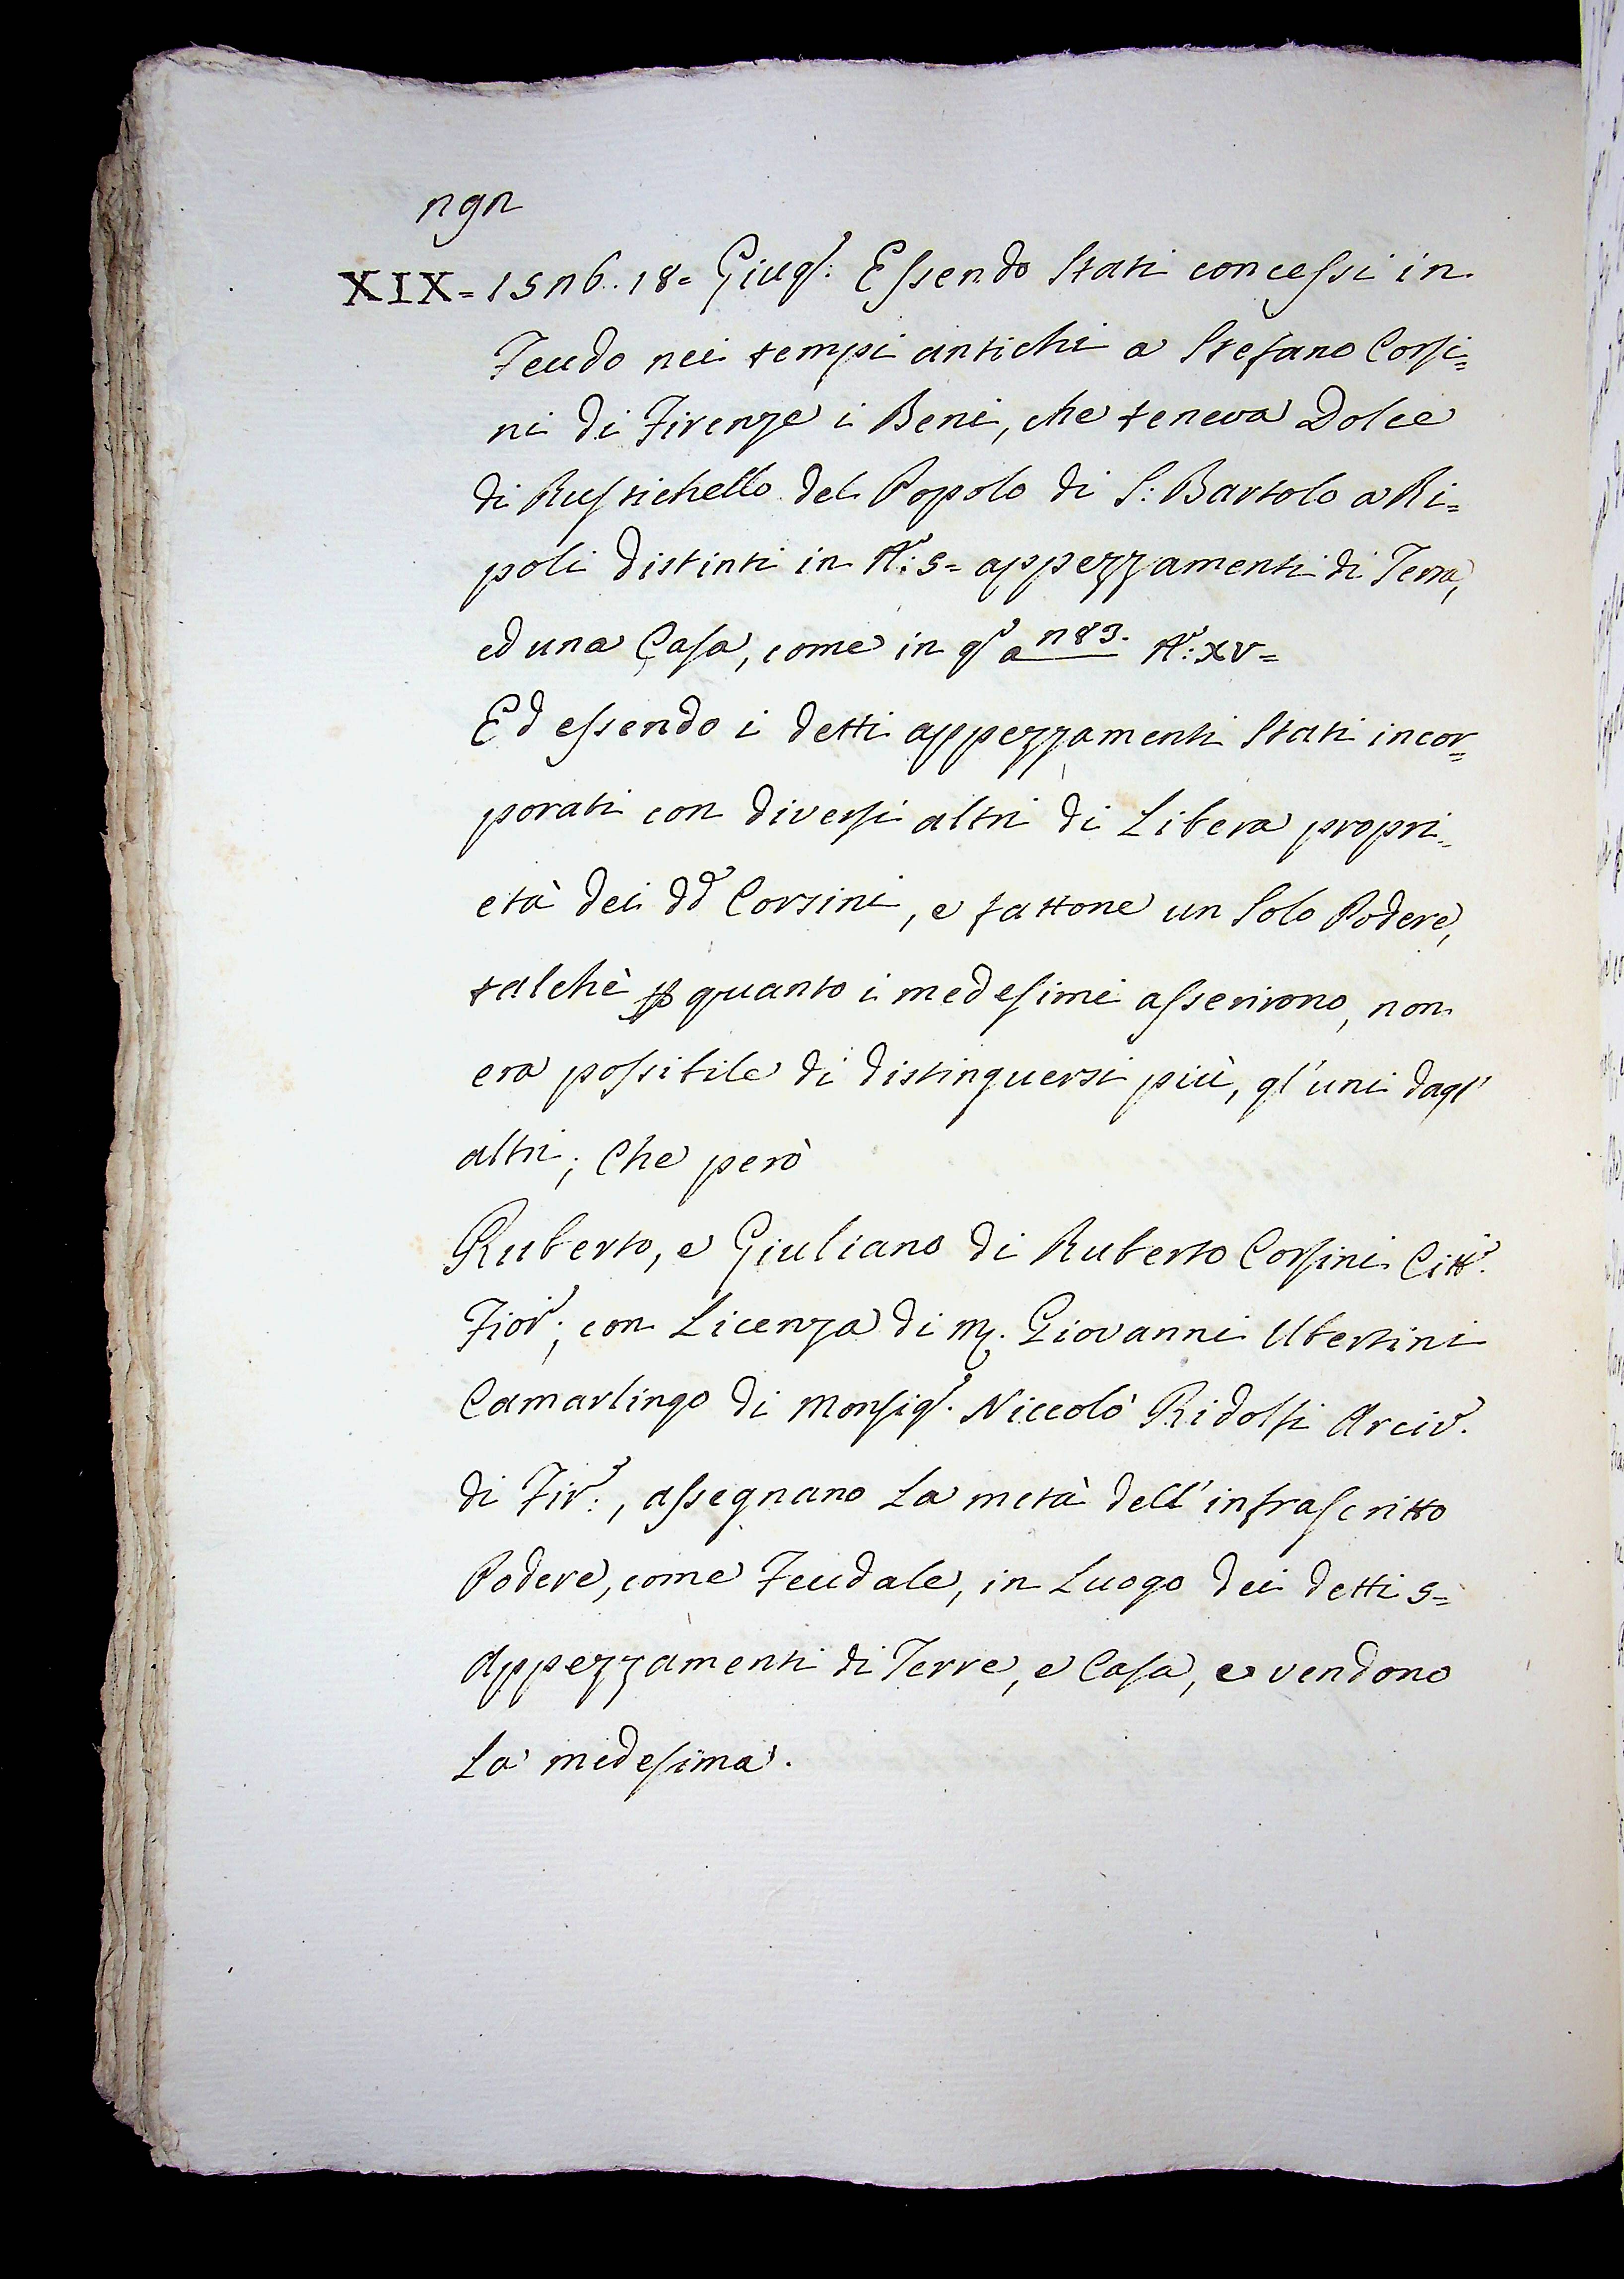 292
XIX = 1526. 18 = Giug.º: Essendo Stati concessi in
Feudo nei tempi antichi a Stefano Corsi=
ni di Firenze i Beni, che teneva Dolce
di Rustichello del Popolo di S: Bartolo a Ri=
poli distinti in N.º: 5 = appezzamenti di Terra,
ed una Casa, come in qº a 283. N.º: XV =
Ed essendo i detti appezzamenti Stati incor=
porati con diversi altri di Libera propri=
età dei dd.ⁱ Corsini, e fattone un Solo Podere,
talchè ꝑ quanto i medesimi asserirono, non
era possibile di distinguersi più, gl'uni dagl'
altri; Che però
Ruberto, e Giuliano di Ruberto Corsini Citt.ⁱ
Fior.ⁱ; con Licenza di M. Giovanni Ubertini
Camarlingo di Monsig.ʳ Niccolò Ridolfi Arciv.º
di Fir.ᵉ:, assegnano La metà dell'infrascritto
Podere, come Feudale, in Luogo dei detti 5 =
Appezzamenti di Terre, e Casa, e vendono
La medesima.